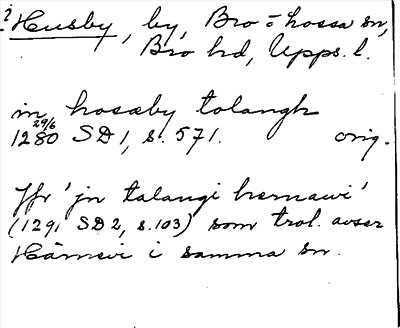 ? Husby, by, Bro o lossa sn,
Bro hd, Upps. l.
in hosæby tolangh
29/6
1280 SD 1, s. 571. orig.
Jfr 'jn talangi hernawi'
(1291 SD 2, s. 103) som trol. avser
Härnevi i samma sn.